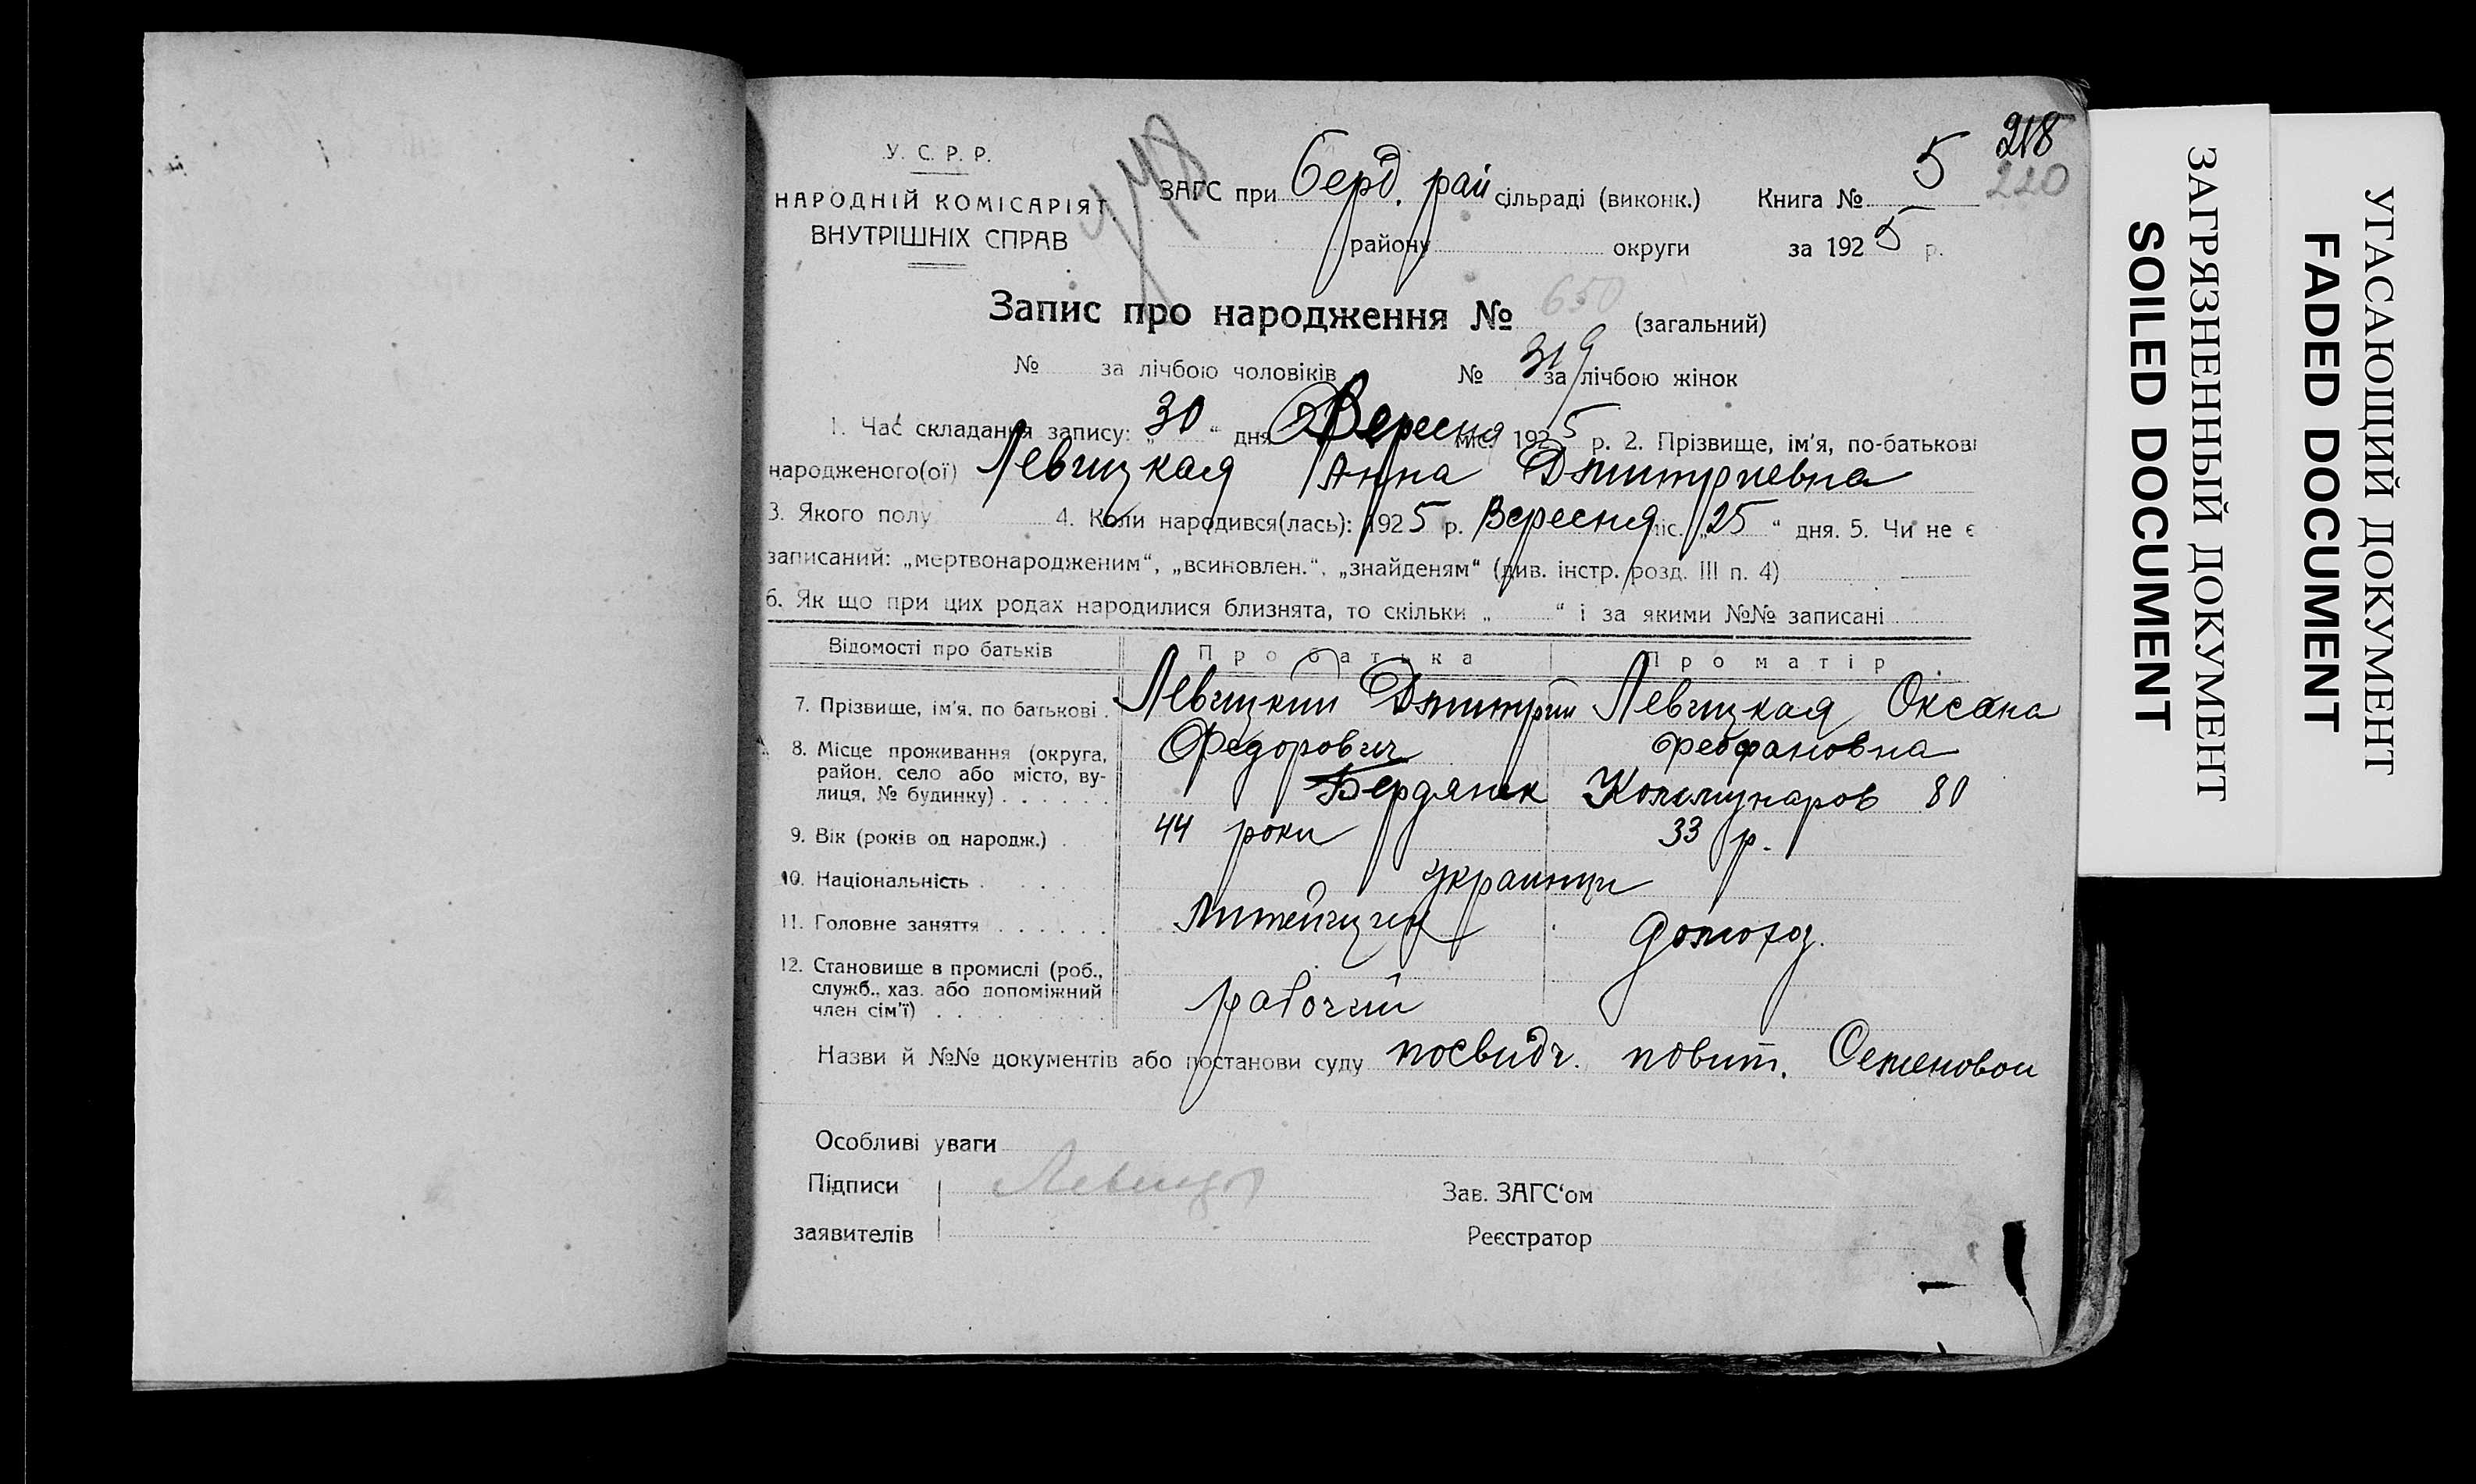 218
220
У. С. Р. Р.
НАРОДНІЙ КОМІСАРІЯТ
ВНУТРІШНІХ СПРАВ
ЗАГС при Берд. рай сільраді (виконк.) Книга № 5
району округи за 1925 р.
Запис про народження № 650 (загальний)
№ за лічбою чоловіків № 319 за лічбою жінок
1. Час складання запису: „30“ дня Вересня міс. 1925 р. 2. Прізвище, ім'я, по-батькові
народженого(ої) Левчицкая Анна Дмитриевна
3. Якого полу 4. Коли народився(лась): 1925 р. Вересня міс. „25“ дня. 5. Чи не є
записаний: „мертвонародженим“, „всиновлен.“, „знайденям“ (див. інстр. розд. III п. 4)
6. Як що при цих родах народилися близнята, то скільки „ “ і за якими №№ записані
Відомості про батьків Про батька Про матір
7. Прізвище, ім'я, по батькові . Левчицкий Дмитрий Левчицкая Оксана
Федорович Феофановна
8. Місце проживання (округа,
район, село або місто, ву-
лиця, № будинку) . . . . . . Бердянск Коммунаров 80
9. Вік (років од народж.) . 44 роки 33 р.
10. Національність . . . . украинци
11. Головне заняття . . . . . . Литейщик домохоз.
12. Становище в промислі (роб.,
служб., хаз. або допоміжний
член сім'ї) . . . . . . . . . рабочий
Назви й №№ документів або постанови суду посвидч. повит. Семеновои
Особливі уваги
Підписи
Зав. ЗАГС‘ом
заявителів
Реєстратор
ЗАГРЯЗНЕННЫЙ ДОКУМЕНТ
SOILED DOCUMENT
УГАСАЮЩИЙ ДОКУМЕНТ
FADED DOCUMENT